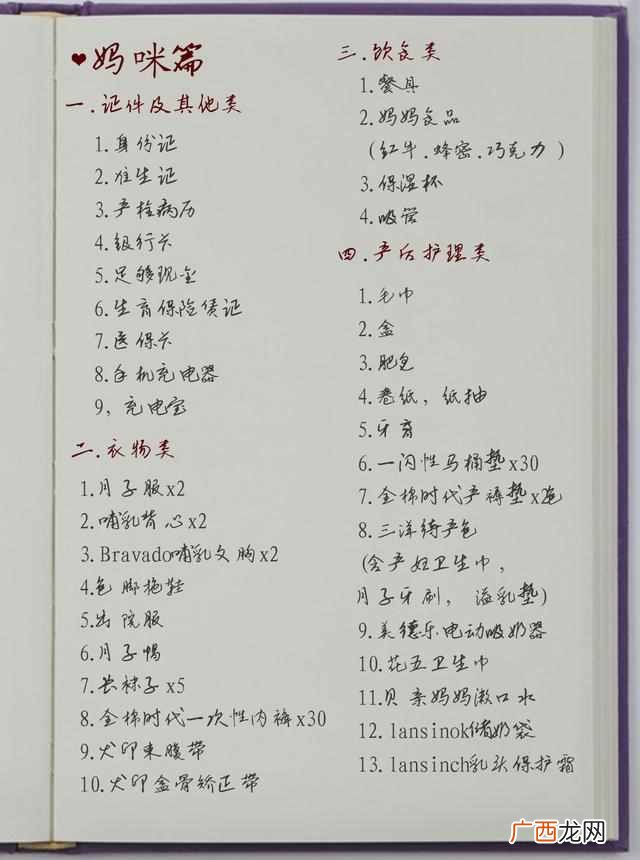 ♥妈咪篇
一.证件及其他类
1.身份证
2.准生证
3.产检病历
4.银行卡
5.足够现金
6.生育保险凭证
7.医保卡
8.手机充电器
9,充电宝
二.衣物类
1.月子服x2
2.哺乳背心x2
3.Bravado哺乳文胸x2
4.包脚拖鞋
5.出院服
6.月子帽
7.长袜子x5
8.全棉时代一次性内裤x30
9.犬印束腹带
10.犬印盆骨矫正带
三.饮食类
1.餐具
2.妈妈食品
(红牛.蜂蜜.巧克力)
3.保湿杯
4.吸管
四.产后护理类
1.毛巾
2.盆
3.肥皂
4.卷纸,纸抽
5.牙膏
6.一次性马桶垫x30
7.全棉时代产褥垫x2包
8.三洋待产包
(含产妇卫生巾,
月子牙刷,溢乳垫)
9.美德乐电动吸奶器
10.花王卫生巾
11.贝亲妈妈漱口水
12.lansinok储奶袋
13.lansinch乳头保护霜
广西龙网